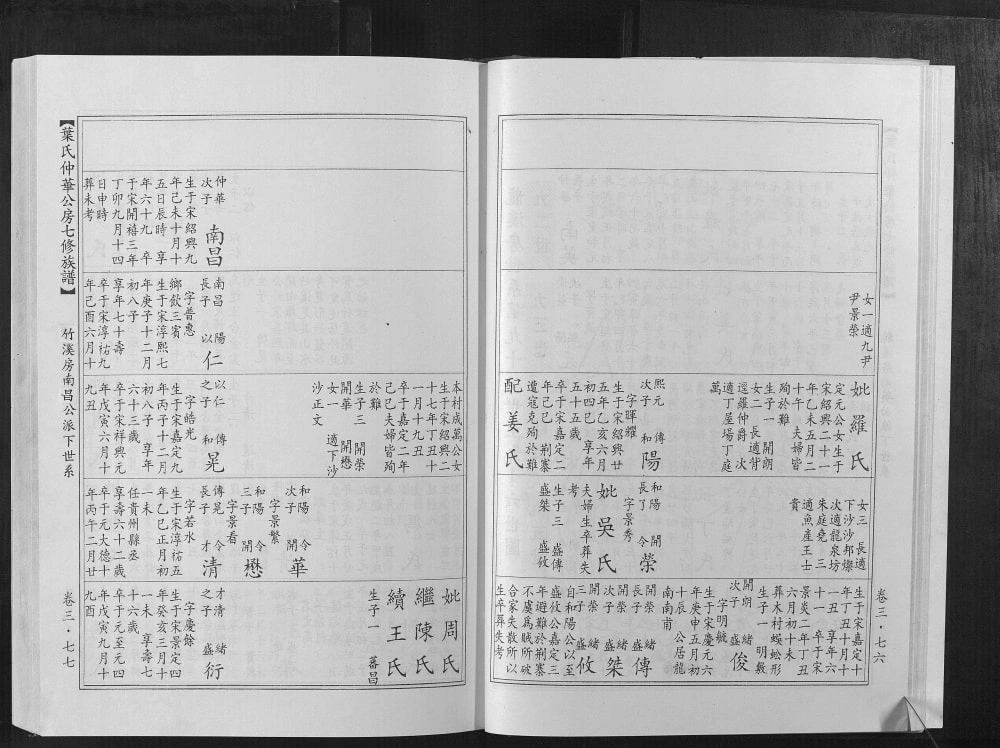 女一適九尹
尹景榮
妣羅氏
定元公女生于
宋紹興二十一
年乙未五月二
十午夫婦皆
殉於難
生子一 開朗
女二長適背
逕羅仲爵 次
適丁屋場丁庭
萬
熙元 傳
次子 和陽
字暉耀
生于宋紹興廿
五年乙亥六月
初四巳時享年
五十五歲
卒于宋嘉定二
年己巳荆寨
遭寇克殉於難
配姜氏
女三 長適
下沙沙邦燦
次適龍泉坊
朱庭堯 三
適魚產王士
貴
和陽 開
長子 令榮
字景秀
妣吳氏
夫婦生卒葬失
考
生子三 盛傳
盛桀 盛攸
生于宋嘉定十
年丁丑十月十
一享年六
十一 卒于宋
景炎二年丁丑
六月初十未
葬木村蜈蚣形
生子一 明數
開朗 緒
次子 盛俊
字明毓
生于宋慶元六
年庚申五月初
十辰 公居龍
南南甫
開榮 緒
長子 盛傳
開榮 緒
次子 盛桀
開榮 緒
三子 盛攸
自和陽公以至
盛攸公嘉定三
年避難於荆寨
不虞爲賊所破
合家失散所以
生卒葬失考
卷三·七六
【葉氏仲華公房七修族譜】
竹溪房南昌公派下世系
仲華
次子 南昌
生于宋紹興九
年己未十月十
五日辰時 享
年六十九 卒
于宋開禧三年
丁卯九月十四
日申時
葬未考
南昌 陽
長子 以仁
字普惠
鄉飲三賓
生于宋淳熙七
年庚子十二月
初八子
享年七十壽
卒于宋淳祐九
年己酉六月十
本村成萬公女
生于宋紹興二
十七年丁丑十
一月十九丑
卒于嘉定二年
己巳夫婦皆殉
於難
生子三 開榮
開華 開懋
女一 適下沙
沙正文
以仁 傳
之子 和晃
字皓光
生于宋嘉定九
年丙子十二月
初八子 享年
六十三歲
卒于宋祥興元
年戊寅六月十
九丑
和陽 令
次子 開華
字景繁
和陽 令
三子 開懋
字景看
傳晃 令
長子 才清
字若水
生于宋淳祐五
年乙巳正月初
一未
任貴州縣丞
享壽六十二歲
卒于元大德十
年丙午二月廿
妣周氏
繼陳氏
續王氏
生子一 蕃昌
才清 緒
之子 盛衍
字慶餘
生于宋景定四
年癸亥三月十
一未 享壽七
十六歲
卒于元至元四
年戊寅九月十
九酉
卷三·七七